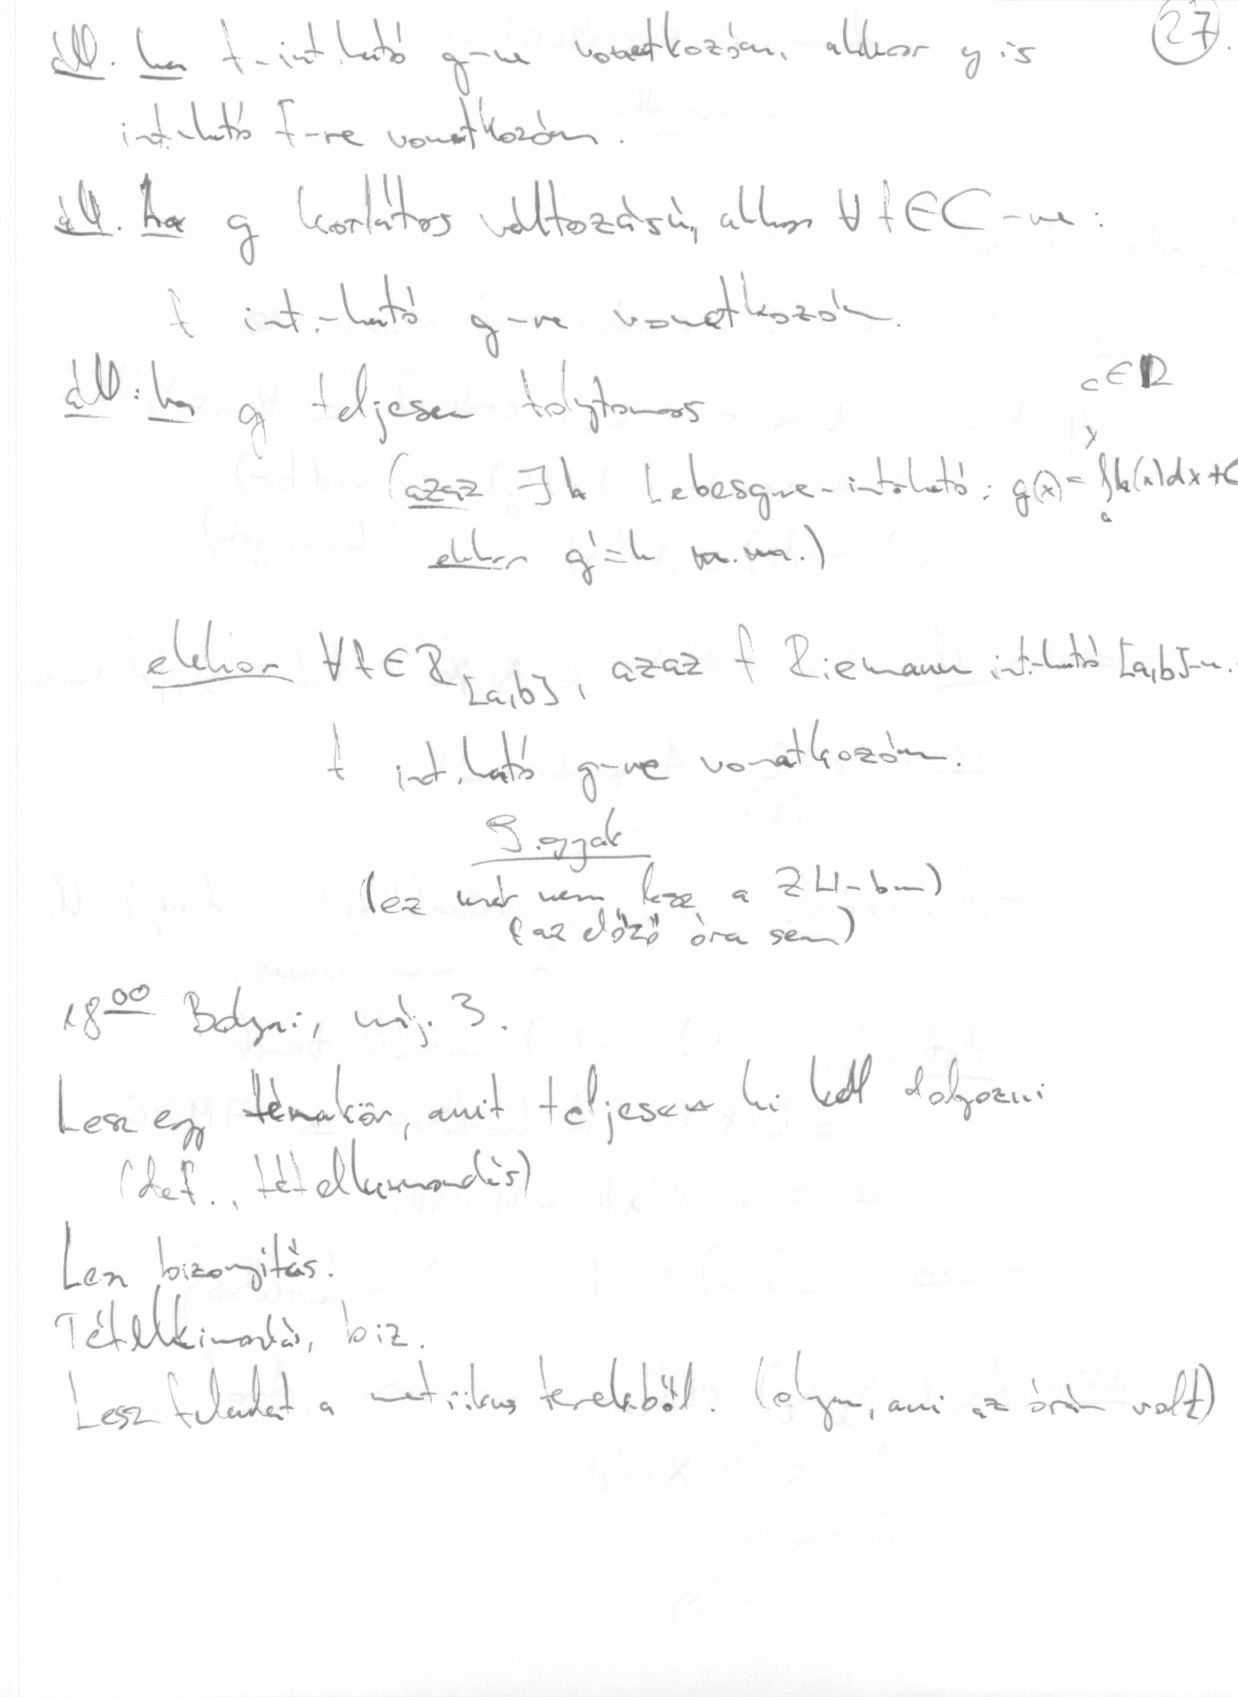 27.
áll. ha f-int.ható g-re vonatkozóan, akkor g is
int.ható f-re vonatkozóan.
áll. ha g korlátos változású, akkor ∀ f∈C-re:
f int.-ható g-re vonatkozóan.
áll: ha g teljesen folytonos c∈R
(azaz ∃ h Lebesgue-int.ható: g(x) = ∫ₐˣ h(x)dx + C
ekkor g'=h m.m.)
ekkor ∀f∈R[a,b], azaz f Riemann int.ható [a,b]-n.
f int.ható g-re vonatkozóan.
9. gyak
(ez már nem lesz a ZH-ban)
(az előző óra sem)
18⁰⁰ Bolyai, máj. 3.
Lesz egy témakör, amit teljesen ki kell dolgozni
(def., tételkimondás)
Lesz bizonyítás.
Tételkimondás, biz.
Lesz feladat a metrikus terekből. (olyan, ami az órán volt)